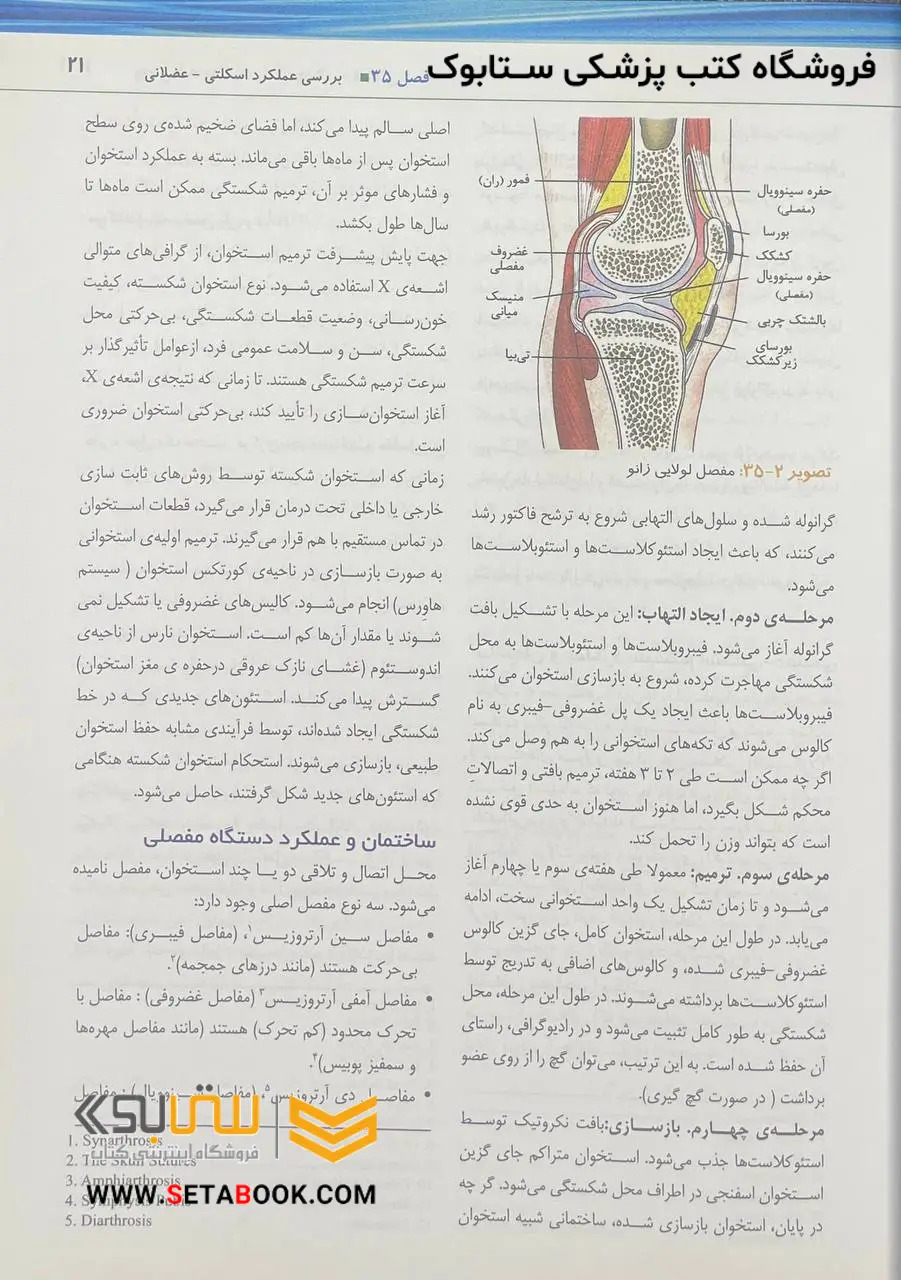 فروشگاه کتب پزشکی ستابوک
فصل ۳۵ ■ بررسی عملکرد اسکلتی - عضلانی
۲۱
فمور (ران)
غضروف
مفصلی
منیسک
میانی
تی‌بیا
حفره سینوویال
(مفصلی)
بورسا
کشکک
حفره سینوویال
(مفصلی)
بالشتک چربی
بورسای
زیرکشکک
تصویر ۲-۳۵: مفصل لولایی زانو
گرانوله شده و سلول‌های التهابی شروع به ترشح فاکتور رشد
می‌کنند، که باعث ایجاد استئوکلاست‌ها و استئوبلاست‌ها
می‌شود.
مرحله‌ی دوم. ایجاد التهاب: این مرحله با تشکیل بافت
گرانوله آغاز می‌شود. فیبروبلاست‌ها و استئوبلاست‌ها به محل
شکستگی مهاجرت کرده، شروع به بازسازی استخوان می‌کنند.
فیبروبلاست‌ها باعث ایجاد یک پل غضروفی-فیبری به نام
کالوس می‌شوند که تکه‌های استخوانی را به هم وصل می‌کند.
اگر چه ممکن است طی ۲ تا ۳ هفته، ترمیم بافتی و اتصالاتِ
محکم شکل بگیرد، اما هنوز استخوان به حدی قوی نشده
است که بتواند وزن را تحمل کند.
مرحله‌ی سوم. ترمیم: معمولا طی هفته‌ی سوم یا چهارم آغاز
می‌شود و تا زمان تشکیل یک واحد استخوانی سخت، ادامه
می‌یابد. در طول این مرحله، استخوان کامل، جای گزین کالوس
غضروفی-فیبری شده، و کالوس‌های اضافی به تدریج توسط
استئوکلاست‌ها برداشته می‌شوند. در طول این مرحله، محل
شکستگی به طور کامل تثبیت می‌شود و در رادیوگرافی، راستای
آن حفظ شده است. به این ترتیب، می‌توان گچ را از روی عضو
برداشت ( در صورت گچ گیری).
مرحله‌ی چهارم. بازسازی:بافت نکروتیک توسط
استئوکلاست‌ها جذب می‌شود. استخوان متراکم جای گزین
استخوان اسفنجی در اطراف محل شکستگی می‌شود. گر چه
در پایان، استخوان بازسازی شده، ساختمانی شبیه استخوان
اصلی سالم پیدا می‌کند، اما فضای ضخیم شده‌ی روی سطح
استخوان پس از ماه‌ها باقی می‌ماند. بسته به عملکرد استخوان
و فشارهای موثر بر آن، ترمیم شکستگی ممکن است ماه‌ها تا
سال‌ها طول بکشد.
جهت پایش پیشرفت ترمیم استخوان، از گرافی‌های متوالی
اشعه‌ی X استفاده می‌شود. نوع استخوان شکسته، کیفیت
خون‌رسانی، وضعیت قطعات شکستگی، بی‌حرکتی محل
شکستگی، سن و سلامت عمومی فرد، ازعوامل تأثیرگذار بر
سرعت ترمیم شکستگی هستند. تا زمانی که نتیجه‌ی اشعه‌ی X،
آغاز استخوان‌سازی را تأیید کند، بی‌حرکتی استخوان ضروری
است.
زمانی که استخوان شکسته توسط روش‌های ثابت سازی
خارجی یا داخلی تحت درمان قرار می‌گیرد، قطعات استخوان
در تماس مستقیم با هم قرار می‌گیرند. ترمیم اولیه‌ی استخوانی
به صورت بازسازی در ناحیه‌ی کورتکس استخوان ( سیستم
هاوِرس) انجام می‌شود. کالیس‌های غضروفی یا تشکیل نمی
شوند یا مقدار آن‌ها کم است. استخوان نارس از ناحیه‌ی
اندوستئوم (غشای نازک عروقی درحفره ی مغز استخوان)
گسترش پیدا می‌کند. استئون‌های جدیدی که در خط
شکستگی ایجاد شده‌اند، توسط فرآیندی مشابه حفظ استخوان
طبیعی، بازسازی می‌شوند. استحکام استخوان شکسته هنگامی
که استئون‌های جدید شکل گرفتند، حاصل می‌شود.
ساختمان و عملکرد دستگاه مفصلی
محل اتصال و تلاقی دو یا چند استخوان، مفصل نامیده
می‌شود. سه نوع مفصل اصلی وجود دارد:
• مفاصل سین آرتروزیس۱، (مفاصل فیبری): مفاصل
بی‌حرکت هستند (مانند درزهای جمجمه)۲.
• مفاصل آمفی آرتروزیس۳ (مفاصل غضروفی) : مفاصل با
تحرک محدود (کم تحرک) هستند (مانند مفاصل مهره‌ها
و سمفیز پوبیس)۴.
• مفاصل دی آرتروزیس۵، (مفاصل سینوویال): مفاصل
1. Synarthrosis
2. The Skull Sutures
3. Amphiarthrosis
4. Symphysis Pubis
5. Diarthrosis
ستابوک
فروشگاه اینترنتی کتاب
WWW.SETABOOK.COM